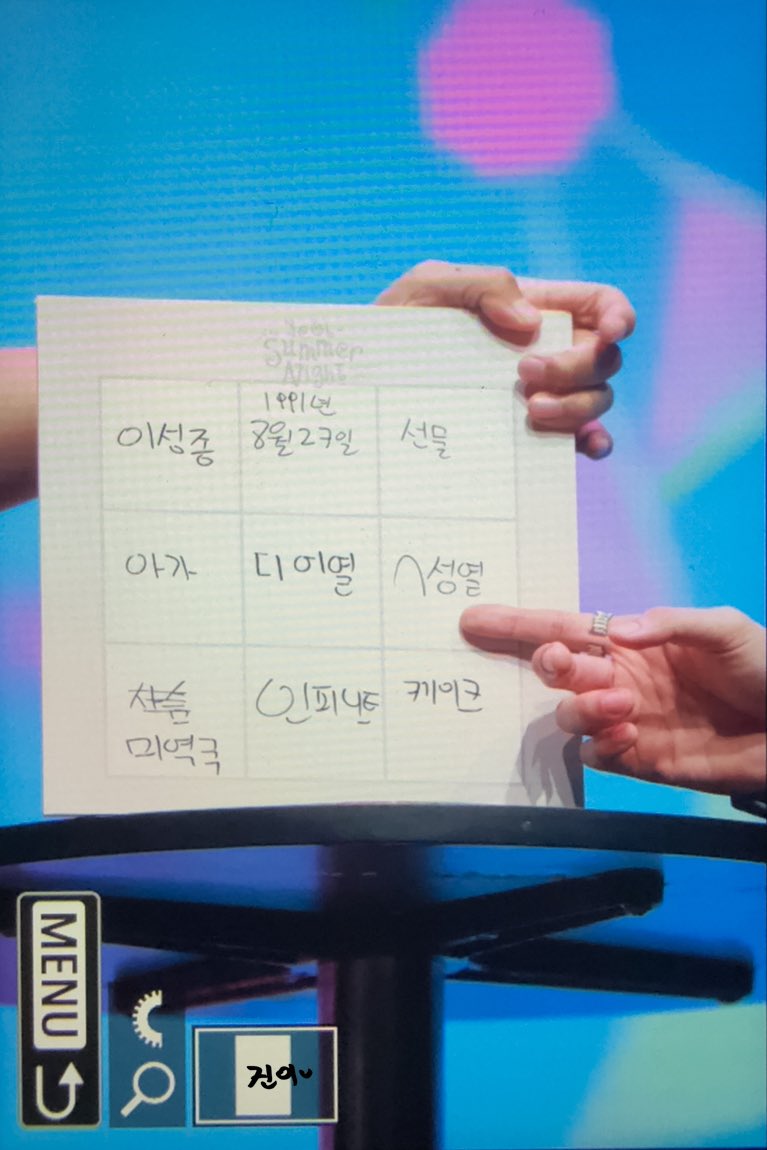 Yeol-
Summer
Night
이성종
1991년
8월27일
선물
아가
디어열
성열
사슴
미역국
인피니트
케이크
MENU
진이